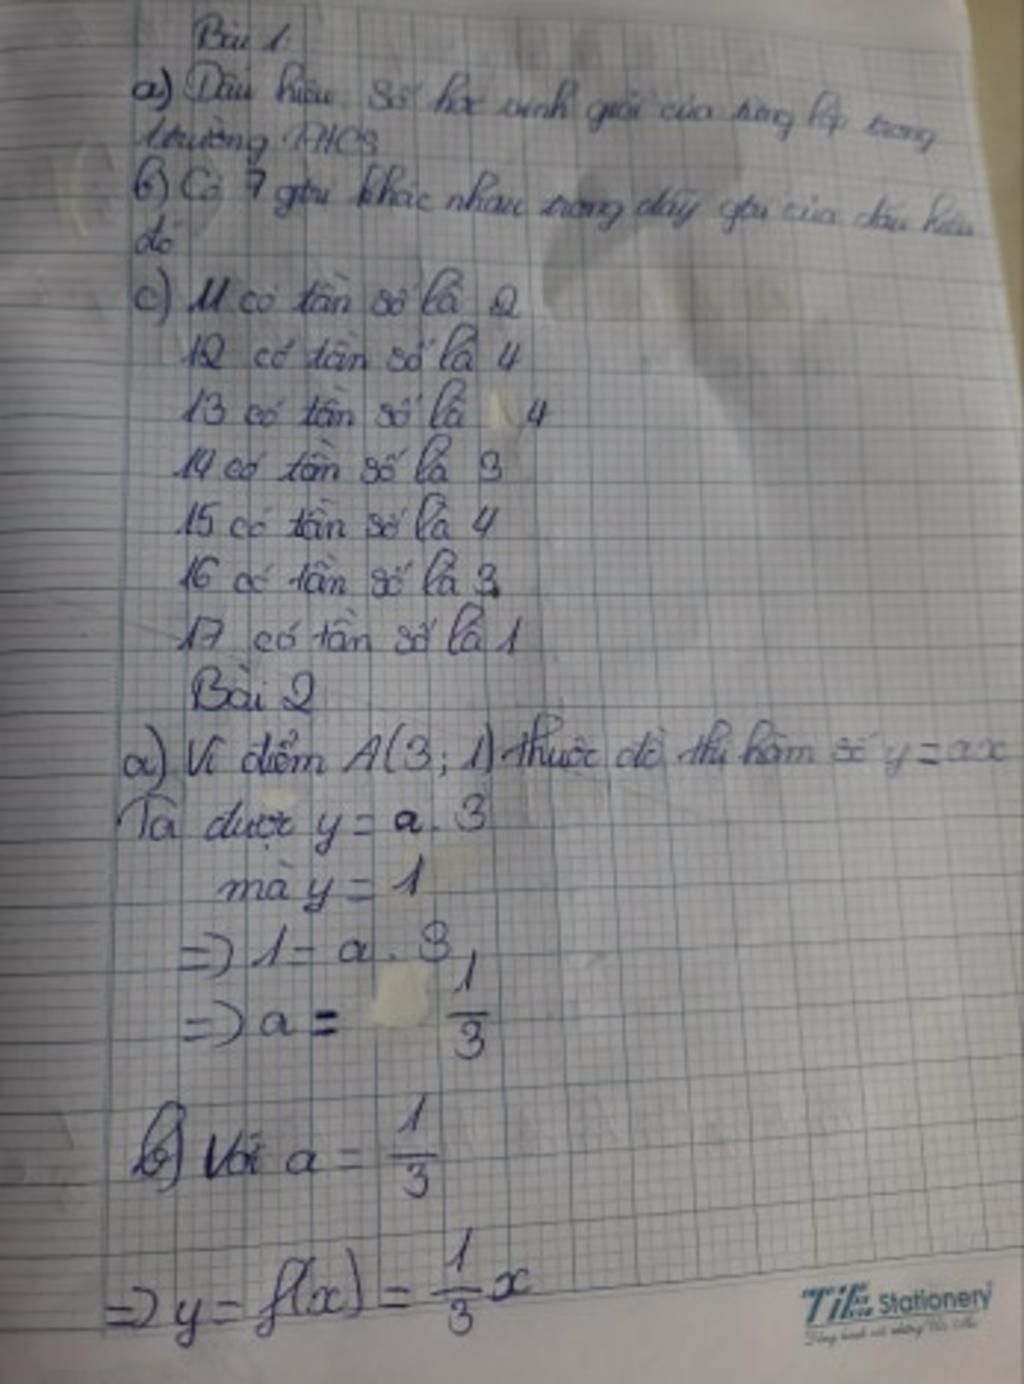 Bài 1
a) Dấu hiệu số học sinh giỏi của từng lớp trong
trường THCS
b) Có 7 gtrị khác nhau trong dãy gtrị của dấu hiệu
đó
c) 11 có tần số là 2
12 có tần số là 4
13 có tần số là 4
14 có tần số là 3
15 có tần số là 4
16 có tần số là 3
17 có tần số là 1
Bài 2
a) Vì điểm A(3; 1) thuộc đồ thị hàm số y = ax
Ta được y = a. 3
mà y = 1
=> 1 = a. 3
=> a = 1/3
b) Với a = 1/3
=> y = f(x) = 1/3 x
TiTi Stationery